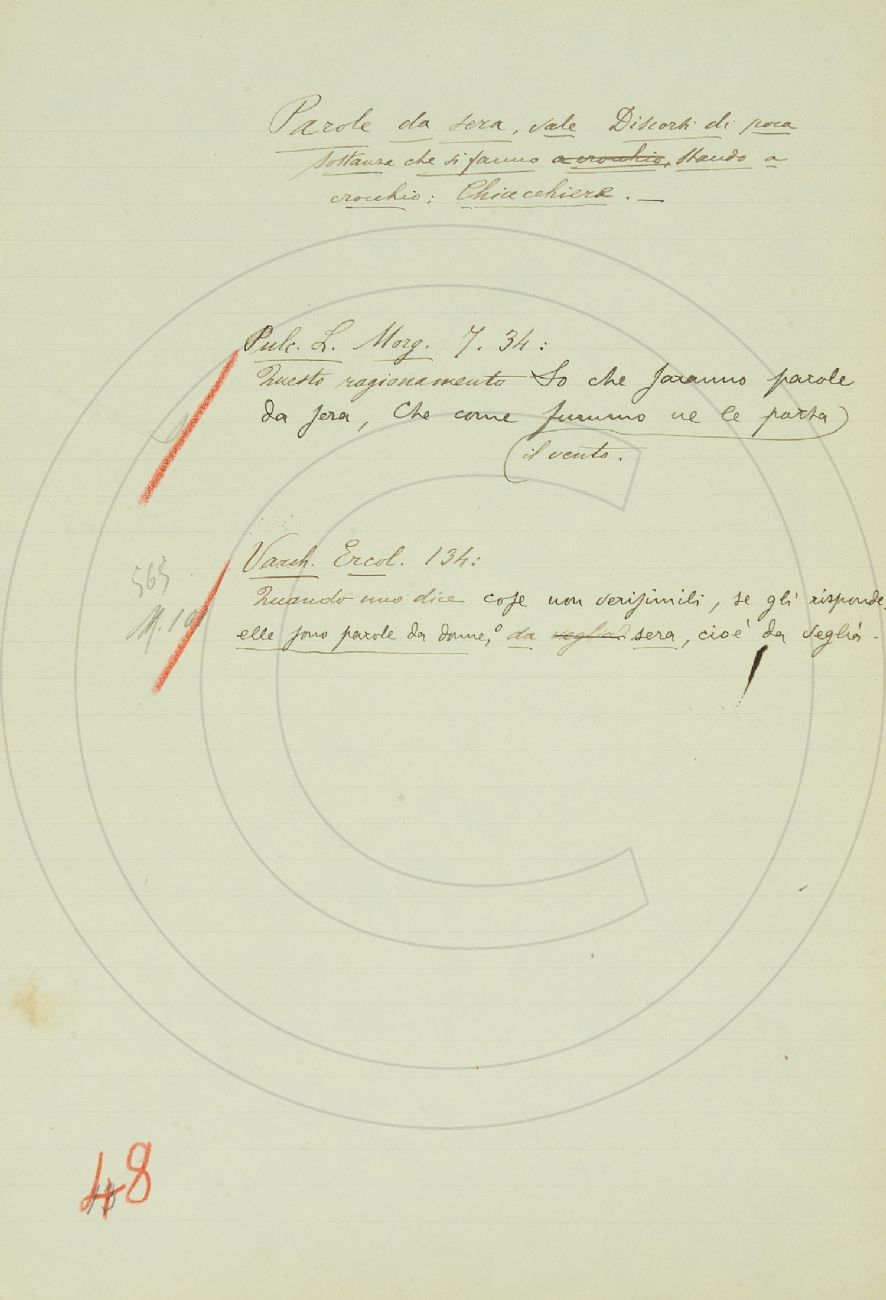 Parole da sera, vale Discorsi di poca
sostanza che si fanno a crocchio, stando a
crocchio; Chiacchiere. —
Pulc. L. Morg. 7. 34:
Questo ragionamento So che faranno parole
da sera, Che come fummo ne le porta
il vento.
Varch. Ercol. 134:
Quando uno dice cose non verisimili, se gli risponde,
elle sono parole da donne, o da veglia sera, cioè da veglia.
565
48